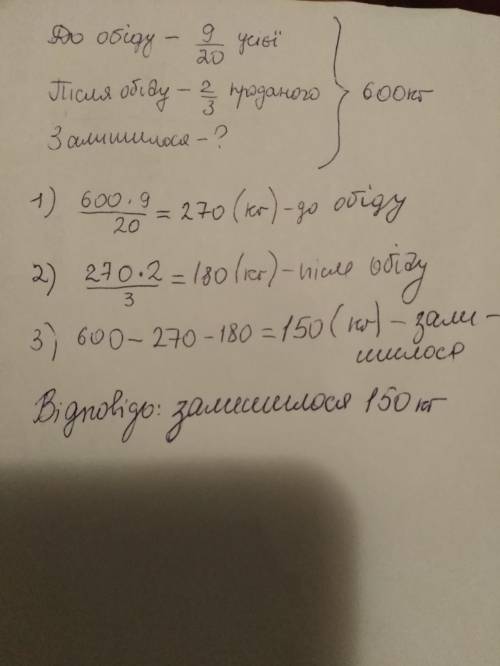 До обіду - 9/20 усієї
Після обіду - 2/3 проданого } 600кг
Залишилося - ?
1) 600·9/20 = 270 (кг) - до обіду
2) 270·2/3 = 180 (кг) - після обіду
3) 600 - 270 - 180 = 150 (кг) - зали-
шилося
Відповідь: залишилося 150 кг